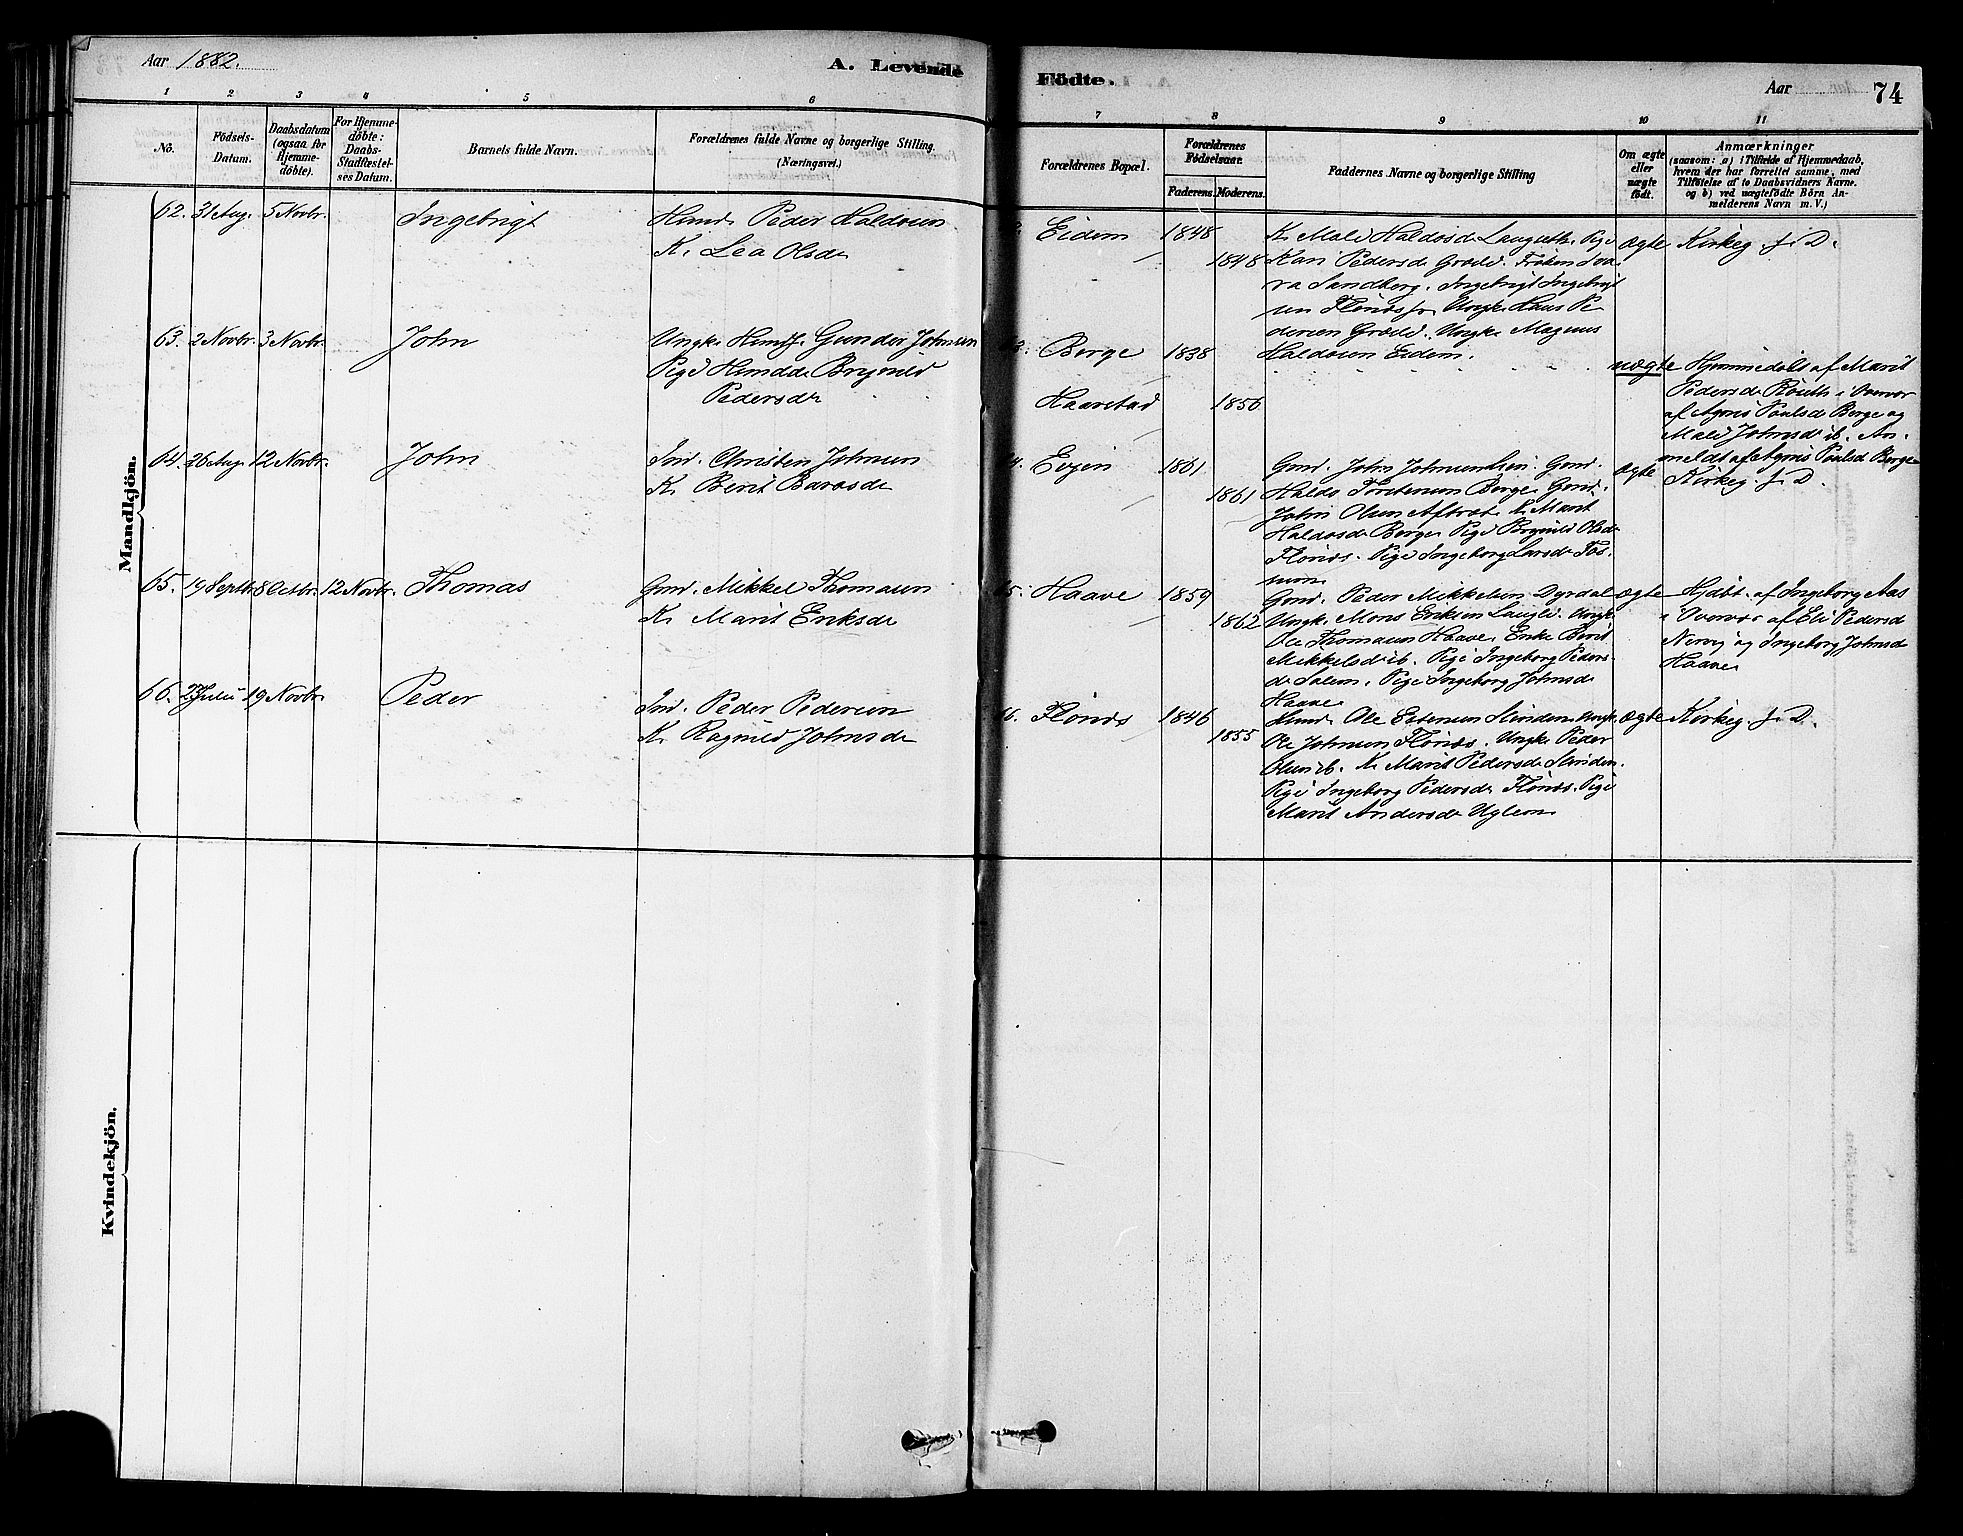 Aar 1882.
A. Levende
Födte.
Aar
74
1
2
3
4
5
6
7
8
9
10
11
No.
Födsels-
Datum.
Daabsdatum
(ogsaa for
Hjemme-
döbte).
For Hjemme-
döbte:
Daabs-
Stadfæstel-
ses Datum.
Barnets fulde Navn.
Forældrenes fulde Navne og borgerlige Stilling.
(Næringsvei.)
Forældrenes Bopæl.
Forældrenes
Födselsaar.
Faderens.
Moderens.
Faddernes Navne og borgerlige Stilling
Om ægte
eller
uægte
födt.
Anmærkninger
(saasom: a) i Tilfælde af Hjemmedaab,
hvem der har forrettet samme, med
Tilföielse af to Daabsvidners Navne.
og b) ved uægtefödte Börn An-
melderens Navn m. V.)
Mandkjön.
62. 31 Aug. 5 Novbr. Ingebrigt
Huusm. Peder Haldosen
K. Lea Olsdr
Eidem 1848
1848
K. Mali Haldosdr Langseth. Pige
Kari Pedersdr Grøtli. Frøken Sva
ra Sandberg. Ingebrigt Ingebrigt
sen Flönæs. Ungk. Hans Pe
dersen Grøtli. Ungk. Magnus
Haldosen Eidem.
ægte
Kirkeg. f. D.
63. 2 Novbr. 3 Novbr. John
Ungk. Gunder Johnsen
Pige Brynild
Pedersdr
Borge 1838
Haarstad 1856
uægte
Hjemmedöbt af Marit
Pedersdr i Overvær
af Agnis Paulsd Borge og
Mali Johnsdr ib. An-
meldt af Agnis Paulsd Borge
64. 26 Aug. 12 Novbr. John
Ind. Christen Johnsen
K. Berit Barosdr
Evjen 1861
1861
Gmd. John Johnsen Gmd.
Haldo Torstensen Borge. Gmd.
John Olsen K. Marit
Haldosdr Borge. Pige Brynild Olsdr
Flönæs. Pige Ingeborg Larsdr Fos
mon
ægte
Kirkeg. f. D.
65. 19 Septbr. 8 Octbr. 12 Novbr. Thomas
Gmd. Mikkel Thomasen
K. Marit Eriksdr
Haave 1859
1862
Gmd. Peder Mikkelsen Dyrdal
Ungk. Mons Eriksen Ungk.
Ole Thomasen Haave. Enke Berit
Mikkelsdr ib. Pige Ingeborg Peders-
dr Salem. Pige Ingeborg Johnsdr
Haave
ægte
Hjdöbt. af Ingeborg Aas
i Overvær af Eli Pedersd
og Ingeborg Johnsd
Haave
66. 23 Julii 19 Novbr. Peder
Ind. Peder Pedersen
K. Ragnild Johnsdr
Flönæs 1846
1855
Huusm. Ole Estensen Ungk.
Ole Johnsen Flönæs. Ungk. Peder
Olsen ib. K. Marit Pedersdr
Pige Ingeborg Pedersdr Flönæs. Pige
Marit Andersdr Uglem
ægte
Kirkeg. f. D.
Kvindekjön.